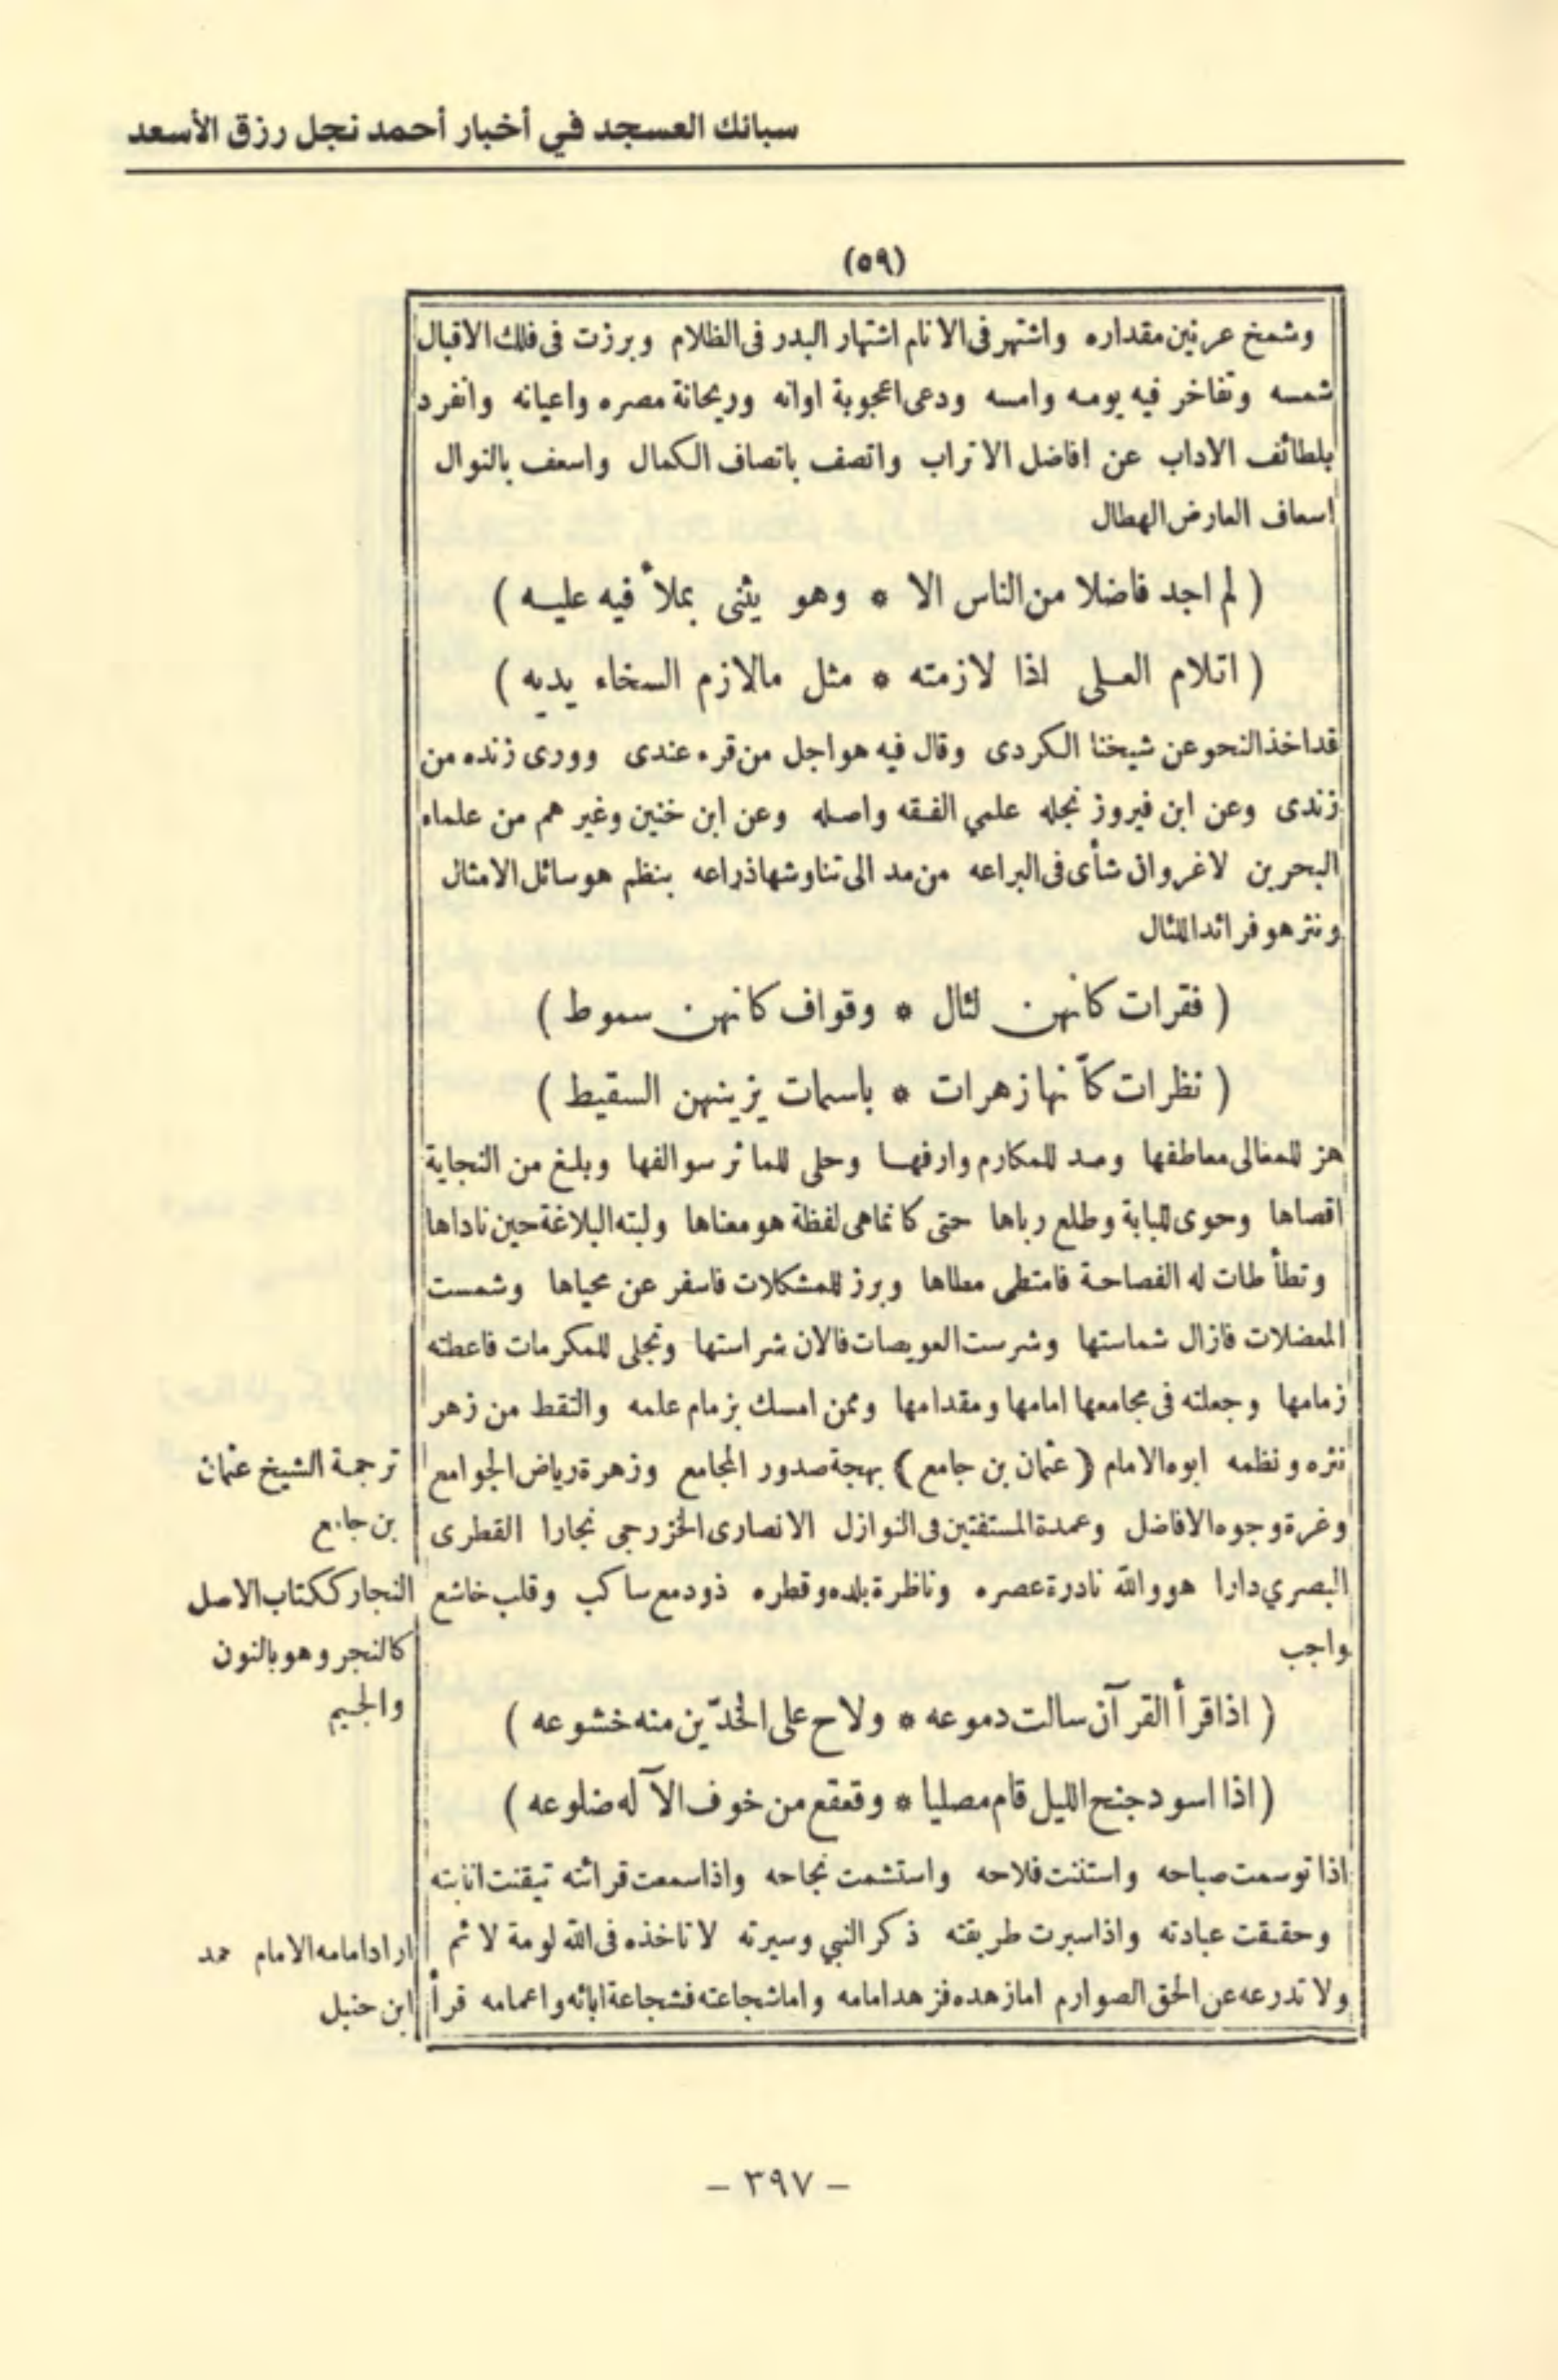 سبائك العسجد في أخبار أحمد نجل رزق الأسعد
(٥٩)
وشمخ عرنين مقداره واشتهر فى الانام اشتهار البدر فى الظلام وبرزت فى فلك الاقبال
شمسه وتفاخر فيه يومه وامسه ودعى اعجوبة اوانه وريحانة مصره واعيانه وانفرد
بلطائف الاداب عن افاضل الاتراب واتصف باتصاف الكمال واسعف بالنوال
اسعاف العارض الهطال
( لم اجد فاضلا من الناس الا * وهو يثنى بملأ فيه عليه )
( اتلام العلى اذا لازمته * مثل مالازم السخاء يديه )
قد اخذ النحو عن شيخنا الكردى وقال فيه هو اجل من قرء عندى وورى زنده من
زندى وعن ابن فيروز نجله علمي الفقه واصله وعن ابن خنين وغيرهم من علماء
البحرين لاغرو ان شأى فى البراعه من مد الى تناوشها ذراعه بنظم هو سائل الامثال
ونثر هو فرائد اللئال
( فقرات كانهن لئال * وقواف كانهن سموط )
( نظرات كأنها زهرات * باسمات يزينهن السقيط )
هز للمعالى معاطفها ومد للمكارم وارفها وحلى للمآثر سوالفها وبلغ من النجابة
اقصاها وحوى للبابة وطلع رباها حتى كانما هى لفظة هو معناها ولبته البلاغة حين ناداها
وتطأطات له الفصاحة فامتطى مطاها وبرز للمشكلات فاسفر عن محياها وشمست
المعضلات فازال شماستها وشرست العويصات فالان شراستها وتجلى للمكرمات فاعطته
زمامها وجعلته فى مجامعها امامها ومقدامها وممن امسك بزمام علمه والتقط من زهر
نثره ونظمه ابوه الامام ( عثمان بن جامع ) بهجة صدور المجامع وزهرة رياض الجوامع
وغرة وجوه الافاضل وعمدة المستفتين فى النوازل الانصارى الخزرجى نجارا القطرى
البصري دارا هو والله نادرة عصره وناظرة بلده وقطره ذو دمع ساكب وقلب خاشع
واجب
( اذا قرأ القرآن سالت دموعه * ولاح على الخدّين منه خشوعه )
( اذا اسود جنح الليل قام مصليا * وقعقع من خوف الآله ضلوعه )
اذا توسمت صباحه واستنت فلاحه واستشمت نجاحه واذا سمعت قرائته تيقنت انابته
وحققت عبادته واذا سبرت طريقته ذكر النبي وسيرته لا تاخذه فى الله لومة لائم
ولا تدرعه عن الحق الصوارم اما زهده فزهد امامه واما شجاعته فشجاعة ابائه واعمامه قرأ
ترجمة الشيخ عثمان
بن جامع
النجار ككتاب الاصل
كالنجر وهو بالنون
والجيم
اراد امامه الامام حمد
ابن حنبل
- ٣٩٧ -